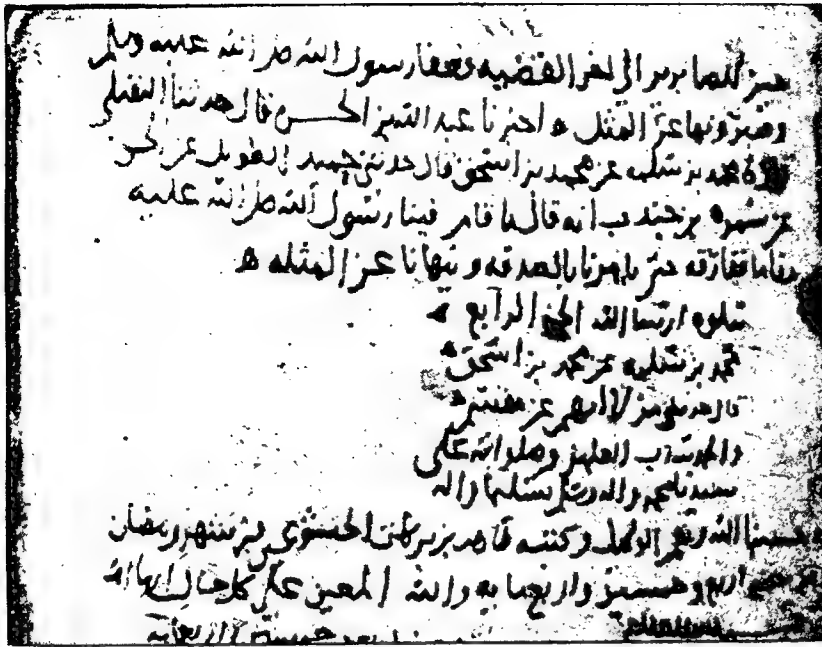 خير للصابرين الى اخر القصه فعفا رسول الله صلى الله عليه وسلم
وصبر ونها عن المثل ه اخبرنا عبد الله بن الحسن قال حدثنا النفيلي
محمد بن سلمه عن محمد بن اسحق قال حدثني حميد الطويل عن الحسن
عن سمره بن جندب انه قال ما قام فينا رسول الله صلى الله عليه
مقاما ففارقه حتى يامرنا بالصدقه وينهانا عن المثله ه
يتلوه ان شا الله الجز الرابع
محمد بن سلمه عن محمد بن اسحق
قال حدثني من لا اتهم عن مقسم
والحمد لله رب العلمين وصلواته على
سيدنا محمد واله وسلم تسليما
حسبنا الله ونعم الوكيل وكتب طاهر بن بركات الخشوعي في شهر رمضان
من سنه اربع وخمسين واربعمايه والله المعين على كل حال